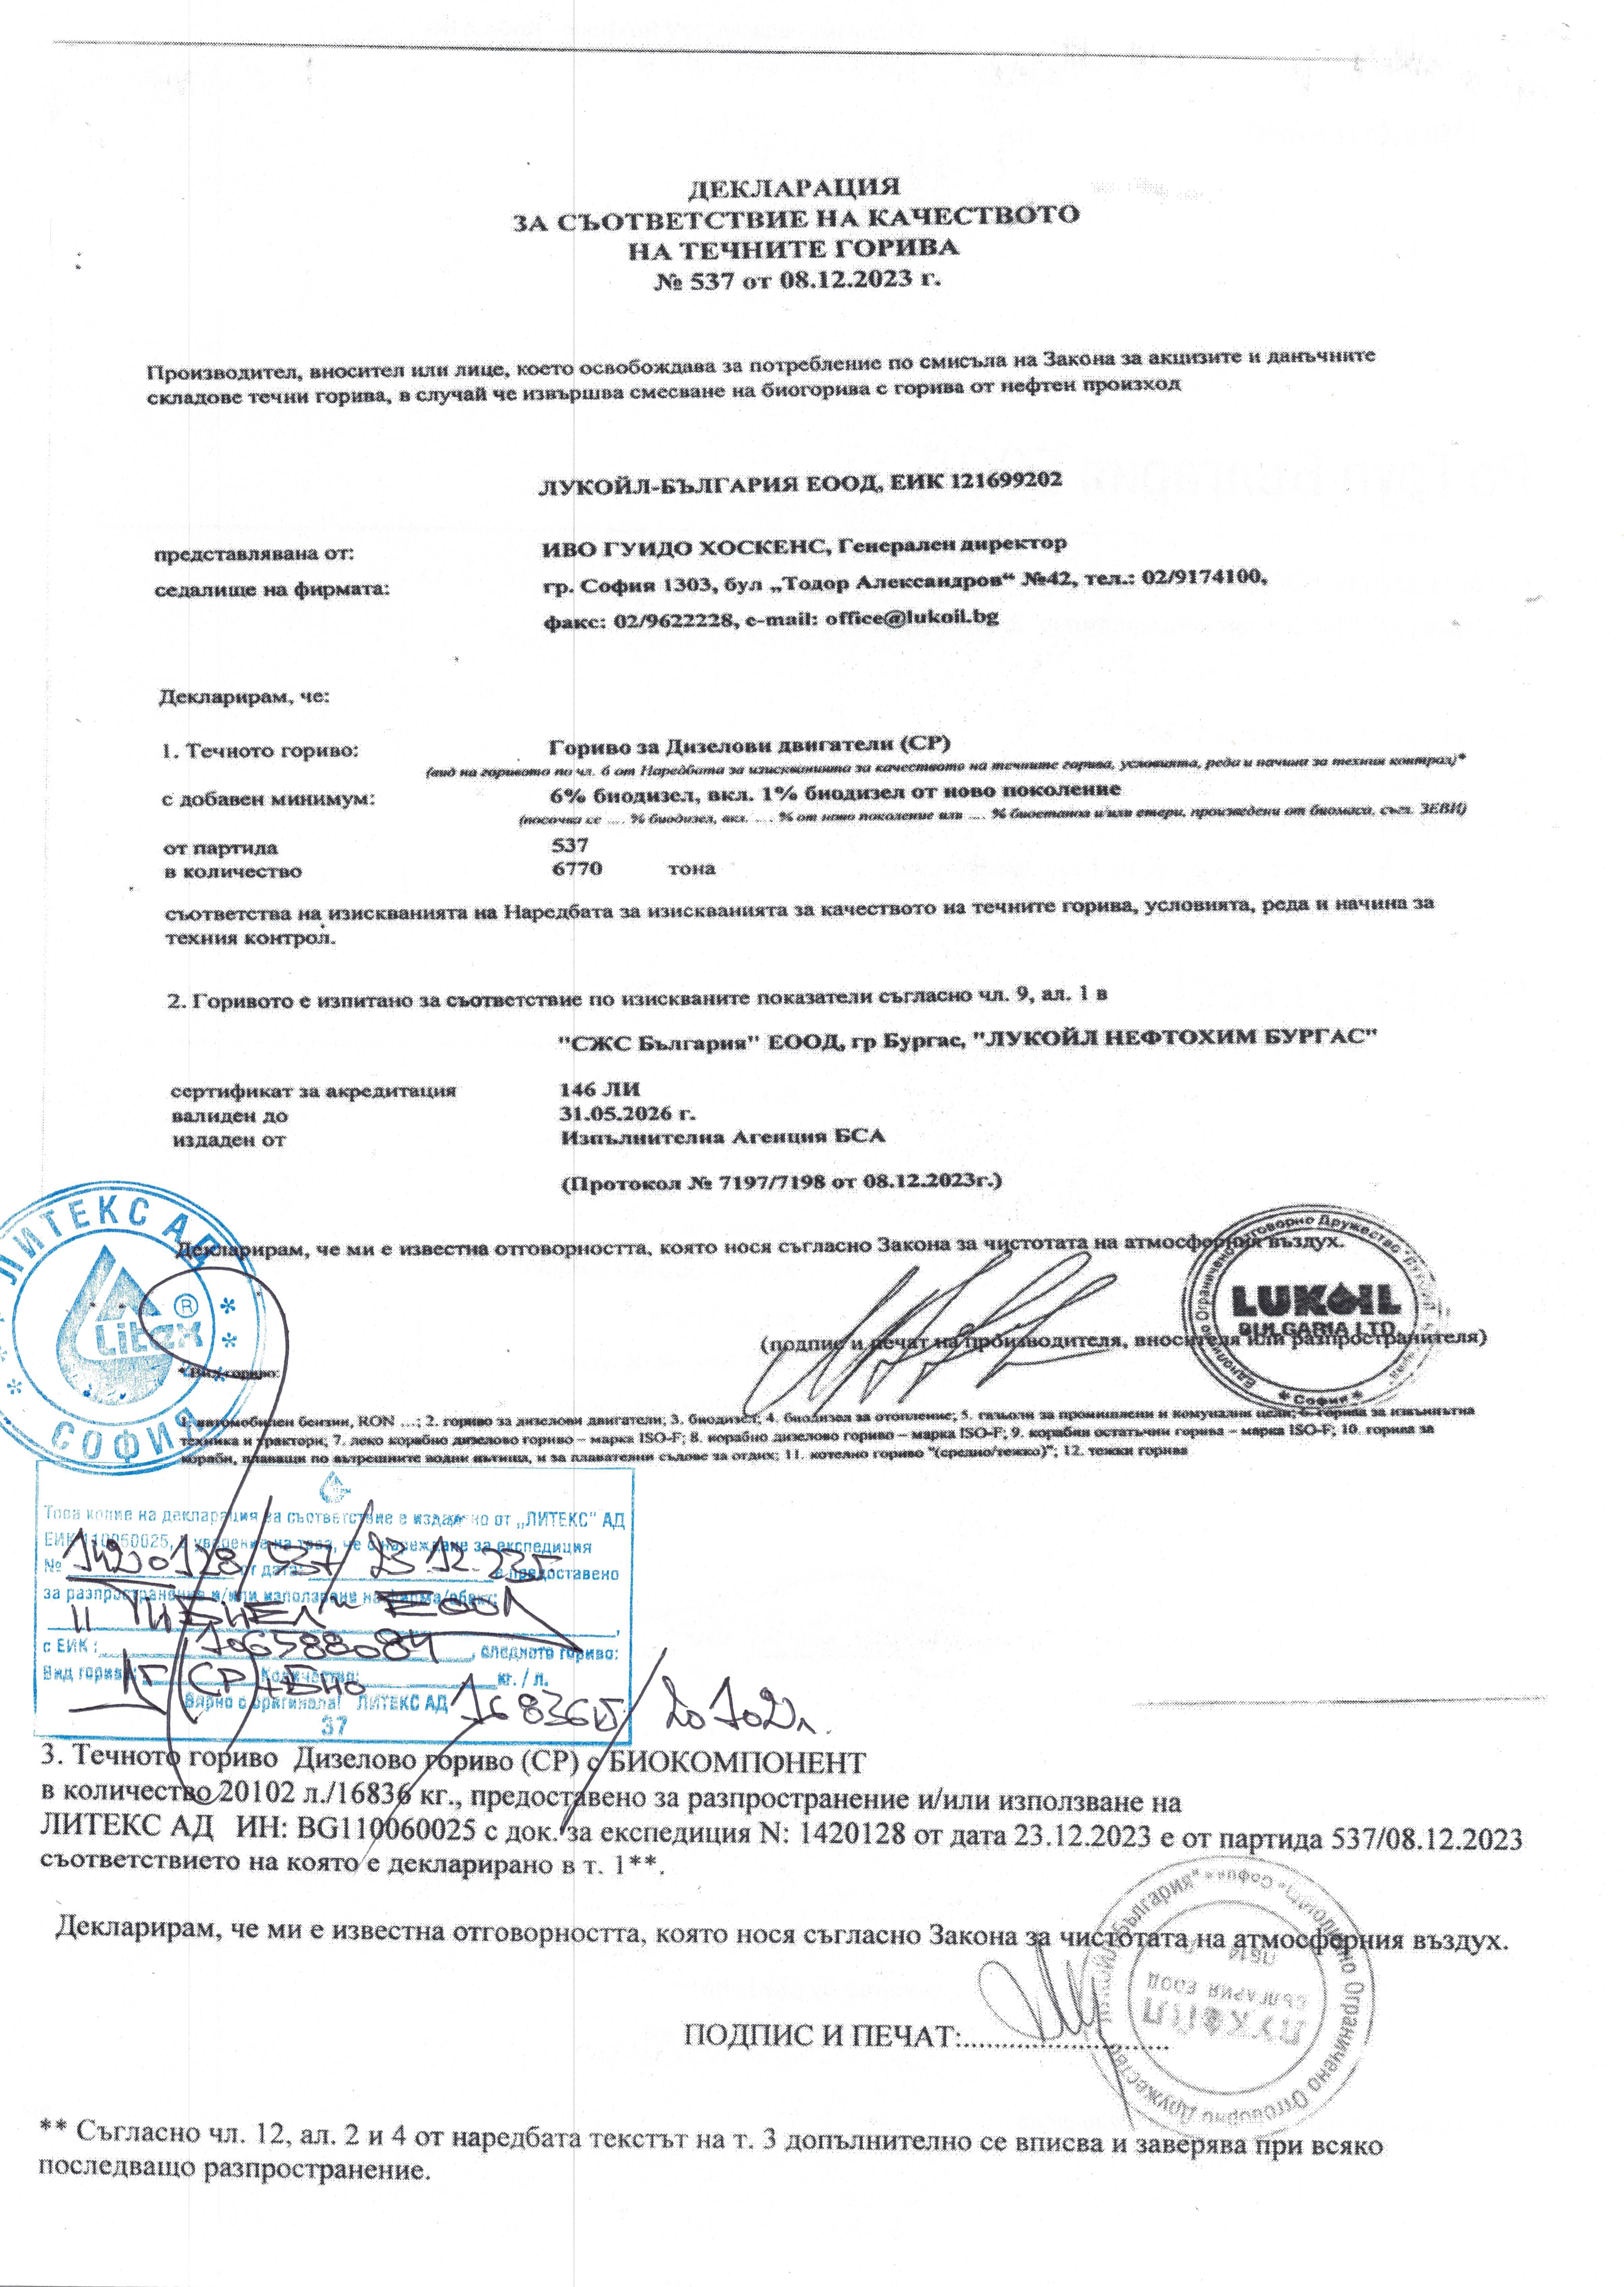 ДЕКЛАРАЦИЯ
ЗА СЪОТВЕТСТВИЕ НА КАЧЕСТВОТО
НА ТЕЧНИТЕ ГОРИВА
№ 537 от 08.12.2023 г.
Производител, вносител или лице, което освобождава за потребление по смисъла на Закона за акцизите и данъчните
складове течни горива, в случай че извършва смесване на биогорива с горива от нефтен произход
ЛУКОЙЛ-БЪЛГАРИЯ ЕООД, ЕИК 121699202
представлявана от: ИВО ГУИДО ХОСКЕНС, Генерален директор
седалище на фирмата: гр. София 1303, бул „Тодор Александров“ №42, тел.: 02/9174100,
факс: 02/9622228, e-mail: office@lukoil.bg
Декларирам, че:
1. Течното гориво: Гориво за Дизелови двигатели (СР)
(вид на горивото по чл. 6 от Наредбата за изискванията за качеството на течните горива, условията, реда и начина за техния контрол)*
с добавен минимум: 6% биодизел, вкл. 1% биодизел от ново поколение
(посочва се .... % биодизел, вкл. .... % от ново поколение или .... % биоетанол и/или етери, произведени от биомаса, съгл. ЗЕВИ)
от партида 537
в количество 6770 тона
съответства на изискванията на Наредбата за изискванията за качеството на течните горива, условията, реда и начина за
техния контрол.
2. Горивото е изпитано за съответствие по изискваните показатели съгласно чл. 9, ал. 1 в
"СЖС България" ЕООД, гр Бургас, "ЛУКОЙЛ НЕФТОХИМ БУРГАС"
сертификат за акредитация 146 ЛИ
валиден до 31.05.2026 г.
издаден от Изпълнителна Агенция БСА
(Протокол № 7197/7198 от 08.12.2023г.)
ЛИТЕКС АД
Litex ®
СОФИЯ
Декларирам, че ми е известна отговорността, която нося съгласно Закона за чистотата на атмосферния въздух.
Ограничено Отговорно Дружество
LUKOIL
BULGARIA LTD
София
(подпис и печат на производителя, вносителя или разпространителя)
* Вид гориво:
1. автомобилен бензин, RON ...; 2. гориво за дизелови двигатели; 3. биодизел; 4. биодизел за отопление; 5. газьоли за промишлени и комунални цели; 6. горива за извънпътна
техника и трактори; 7. леко корабно дизелово гориво – марка ISO-F; 8. корабно дизелово гориво – марка ISO-F; 9. корабни остатъчни горива – марка ISO-F; 10. горива за
кораби, плаващи по вътрешните водни пътища, и за плавателни съдове за отдих; 11. котелно гориво "(средно/тежко)"; 12. тежки горива
Това копие на декларация за съответствие е издадено от „ЛИТЕКС" АД
ЕИК 110060025, в уверение на това, че с нареждане за експедиция
№ 1420128/537/23.12.23г от дата: е предоставено
за разпространение и/или използване на фирма/обект:
"ТИБИЕЛ" ЕООД
с ЕИК: 106588084, следното гориво:
Вид гориво: ДГ(СР)+Био Количество: кг. / л.
Вярно с оригинала! ЛИТЕКС АД 16836кг/20102л.
37
3. Течното гориво Дизелово гориво (СР) с БИОКОМПОНЕНТ
в количество 20102 л./16836 кг., предоставено за разпространение и/или използване на
ЛИТЕКС АД ИН: BG110060025 с док. за експедиция N: 1420128 от дата 23.12.2023 е от партида 537/08.12.2023
съответствието на която е декларирано в т. 1**.
Декларирам, че ми е известна отговорността, която нося съгласно Закона за чистотата на атмосферния въздух.
ПОДПИС И ПЕЧАТ:..........................
Ограничено Отговорно Дружество
ЛУКОЙЛ
БЪЛГАРИЯ ЕООД
** Съгласно чл. 12, ал. 2 и 4 от наредбата текстът на т. 3 допълнително се вписва и заверява при всяко
последващо разпространение.